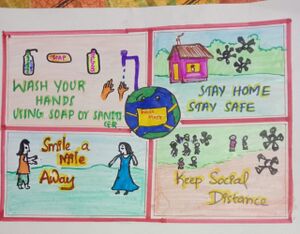 SOAP
WASH YOUR
HANDS
USING SOAP OR SANITI
ZER
STAY HOME
STAY SAFE
Smile a
Mile
Away
Keep Social
Distance